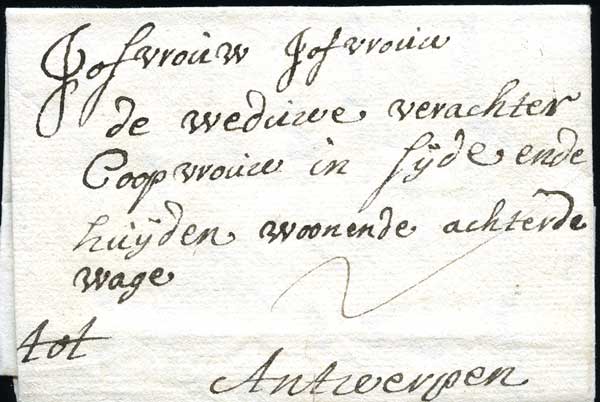 Jofvrouw Jofvrouw
de weduwe verachter
Coopvrouw in sijde ende
huijden woonende achter de
wage
tot
Antwerpen